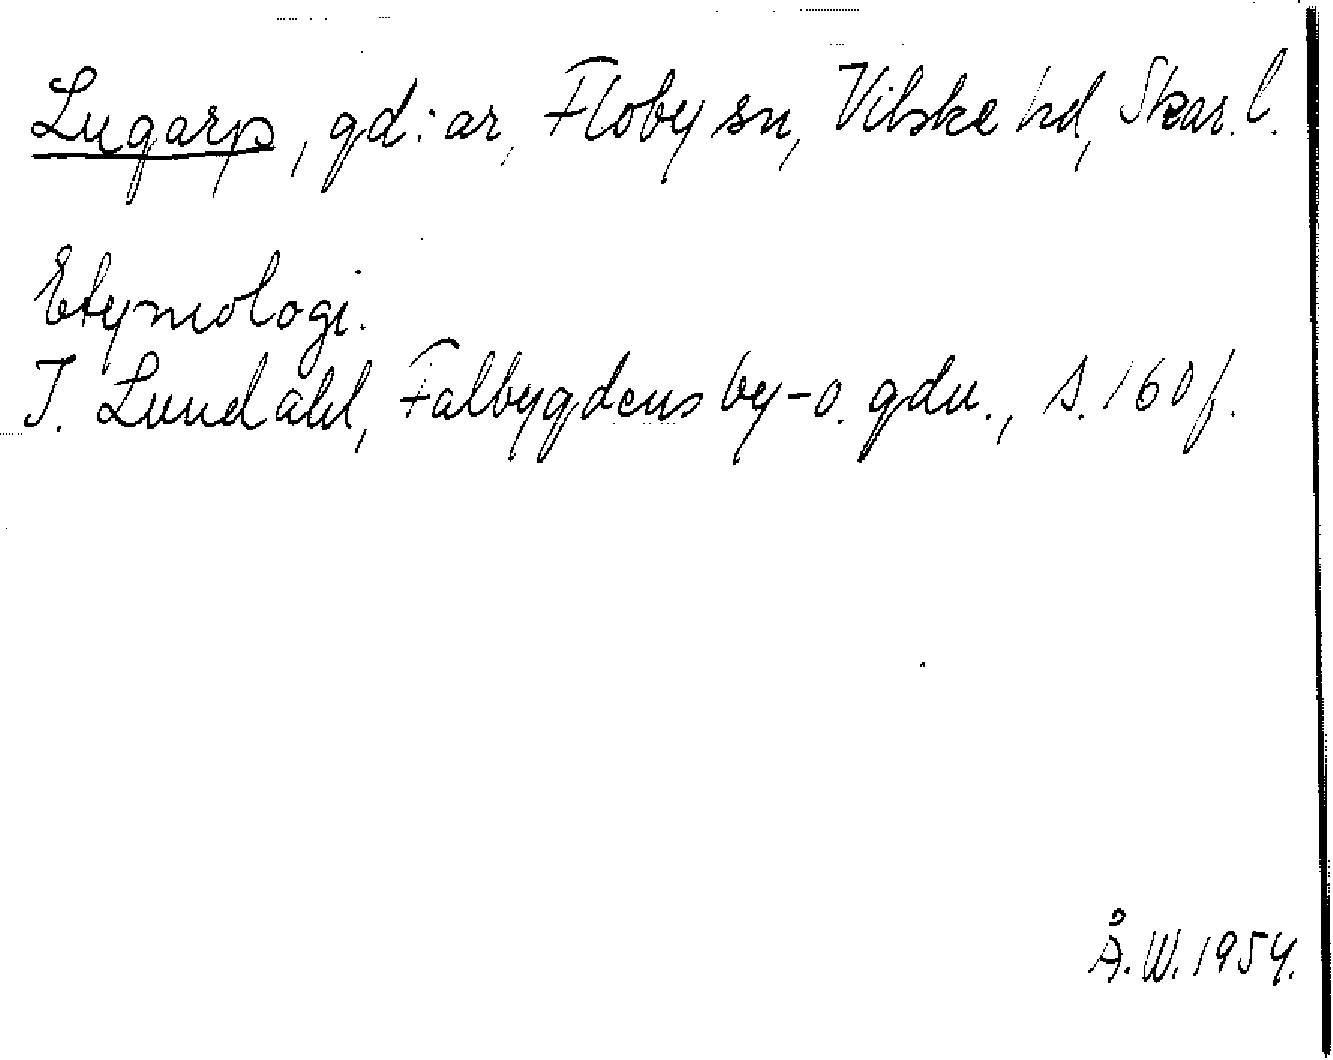 Lugarp, gd:ar, Floby sn, Vilske hd, Skar. l.
Etymologi.
I. Lundahl, Falbygdens by- o. gdn., s. 160 f.
Å. W. 1954.